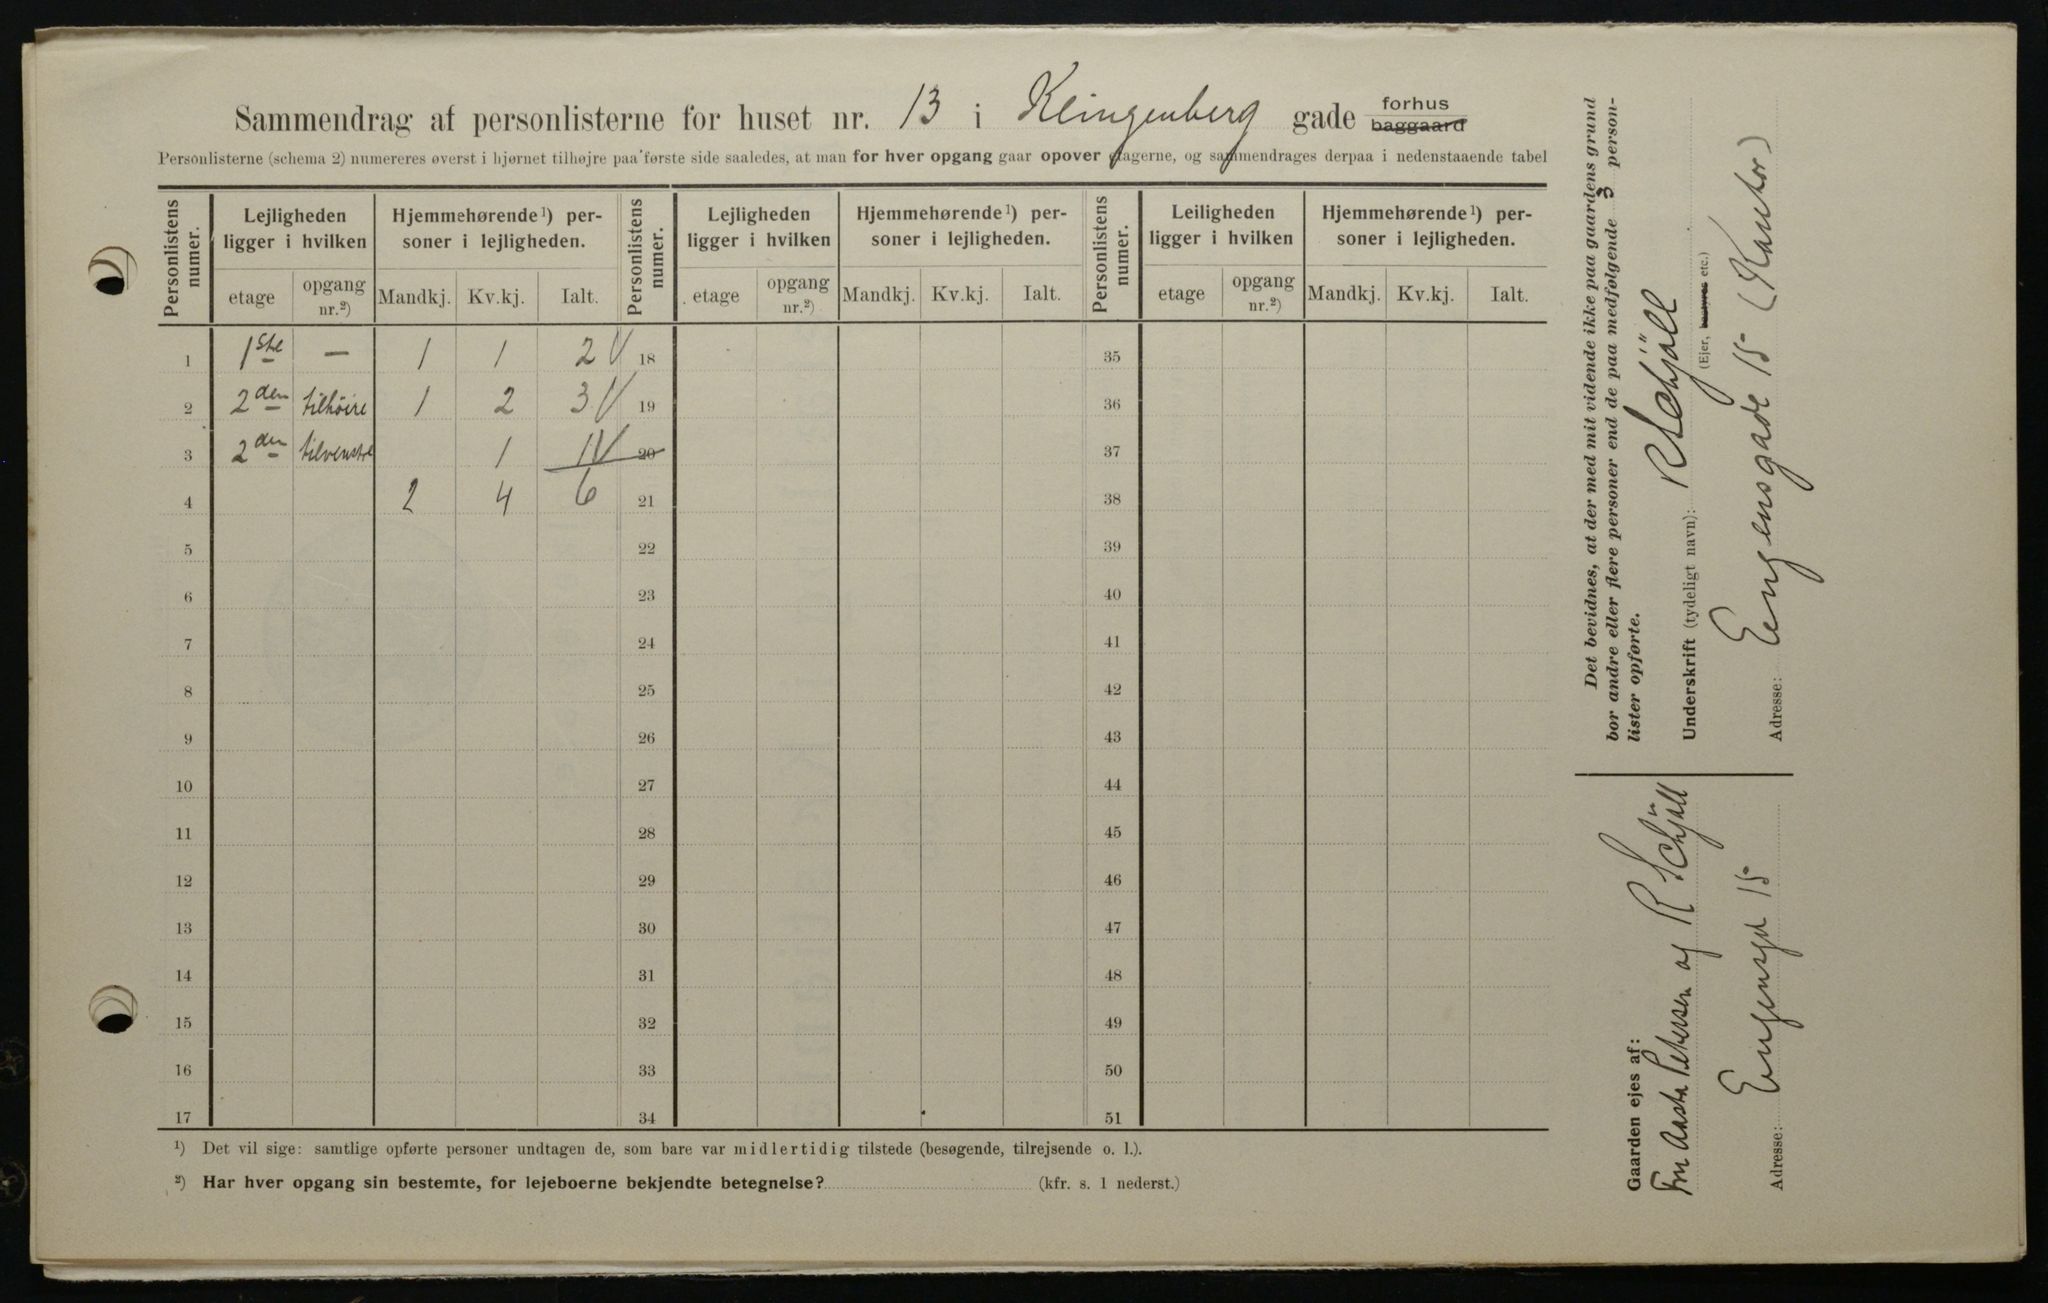 Sammendrag af personlisterne for huset nr. 13 i Klingenberg gade forhus baggaard
Personlisterne (schema 2) numereres øverst i hjørnet tilhøjre paa første side saaledes, at man for hver opgang gaar opover etagerne, og sammendrages derpaa i nedenstaaende tabel
Personlistens numer. Lejligheden ligger i hvilken Hjemmehørende ¹) personer i lejligheden. Personlistens numer. Lejligheden ligger i hvilken Hjemmehørende ¹) personer i lejligheden. Personlistens numer. Leiligheden ligger i hvilken Hjemmehørende ¹) personer i lejligheden.
etage opgang nr.²) Mandkj. Kv.kj. Ialt. etage opgang nr.²) Mandkj. Kv.kj. Ialt. etage opgang nr.²) Mandkj. Kv.kj. Ialt.
1 1ste — 1 1 2 V 18 35
2 2den tilhöire 1 2 3 V 19 36
3 2den tilvenstre 1 1 V 20 37
4 2 4 6 21 38
5 22 39
6 23 40
7 24 41
8 25 42
9 26 43
10 27 44
11 28 45
12 29 46
13 30 47
14 31 48
15 32 49
16 33 50
17 34 51
¹) Det vil sige: samtlige opførte personer undtagen de, som bare var midlertidig tilstede (besøgende, tilrejsende o. l.).
²) Har hver opgang sin bestemte, for lejeboerne bekjendte betegnelse? (kfr. s. 1 nederst.)
Det bevidnes, at der med mit vidende ikke paa gaardens grund
bor andre eller flere personer end de paa medfølgende 3 person-
lister opførte.
Underskrift (tydeligt navn): R Schjöll
(Ejer, bestyrer etc.)
Adresse: Eugensgade 15 (Kontor)
Gaarden ejes af:
Fru Aasta Petersen og R Schjöll
Adresse: Eugensgd 15